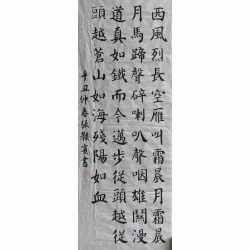 西風烈長空雁叫霜晨月霜晨
月馬蹄聲碎喇叭聲咽雄關漫
道真如鐵而今邁步從頭越從
頭越蒼山如海殘陽如血
辛丑仲春張書